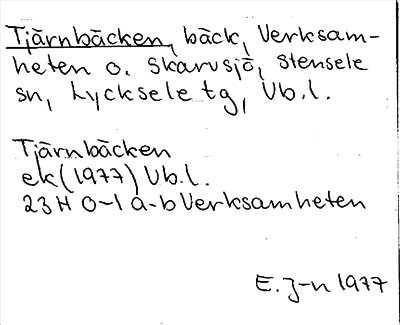 Tjärnbäcken, bäck, Verksam-
heten o. Skarvsjö, Stensele
sn, Lycksele tg, Vb.l.
Tjärnbäcken
ek (1977) Vb.l.
23 H 0-1 a-b Verksamheten
E. J-n 1977